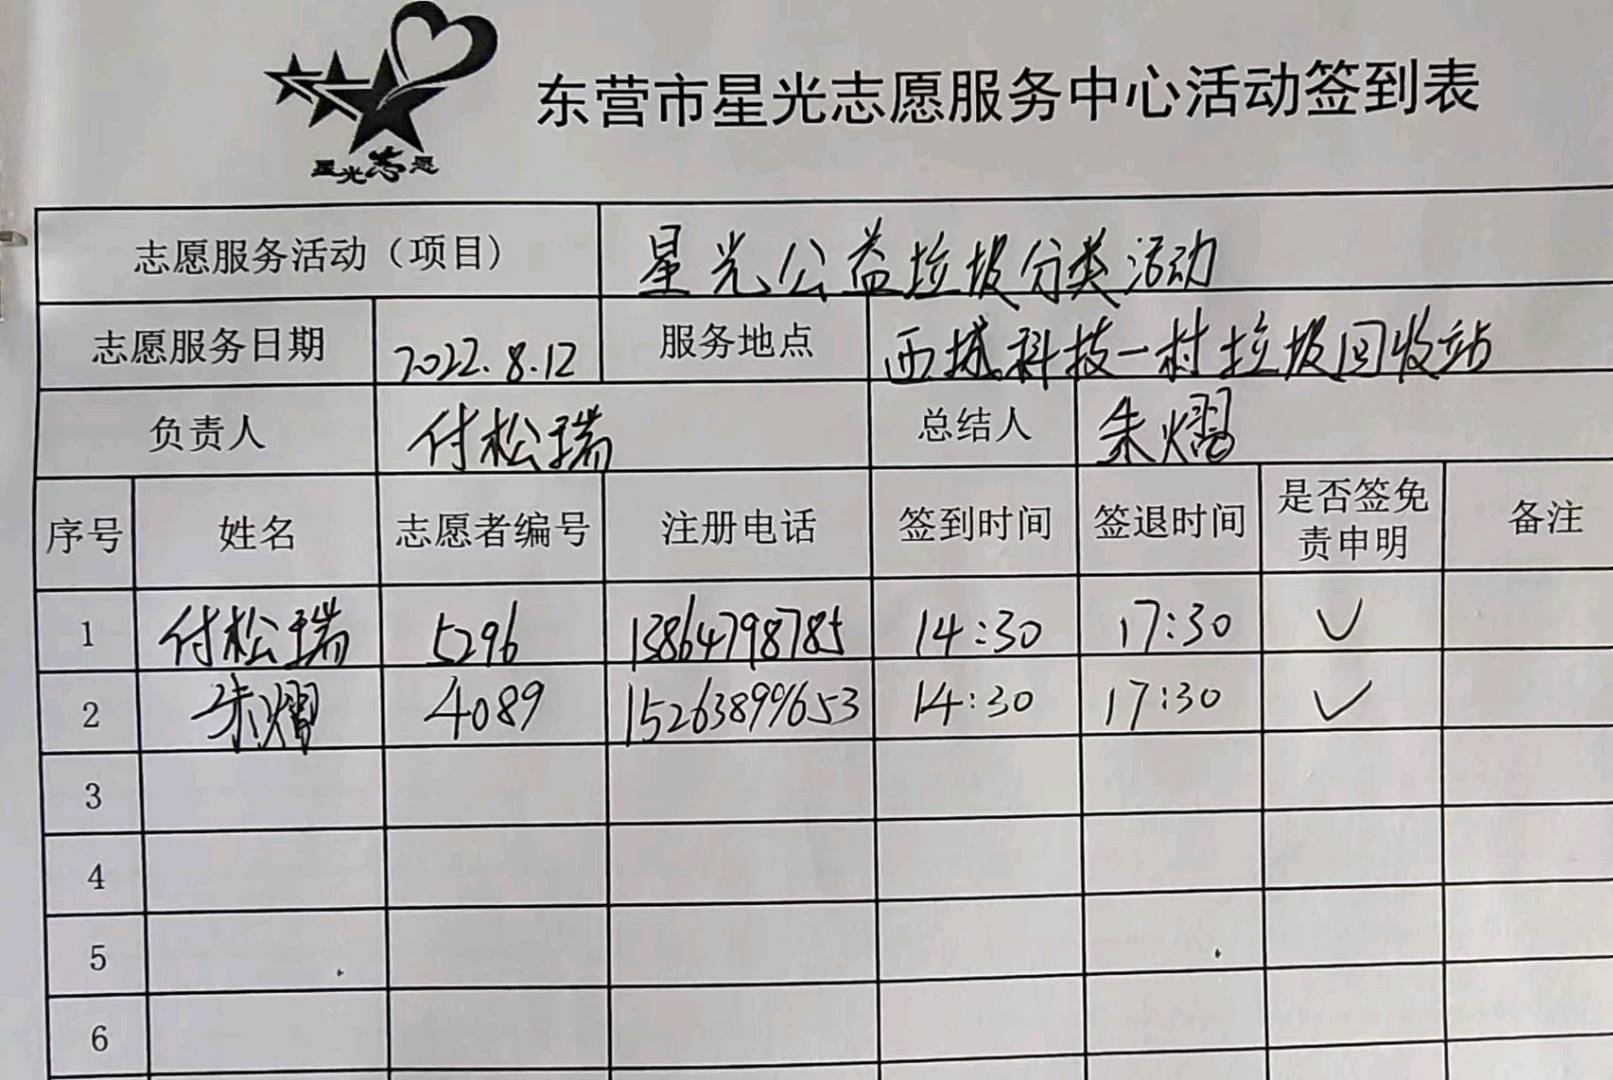 东营市星光志愿服务中心活动签到表
星光志愿
志愿服务活动（项目） 星光公益垃圾分类活动
志愿服务日期 2022.8.12 服务地点 西城科技一村垃圾回收站
负责人 付松瑞 总结人 朱熠
序号 姓名 志愿者编号 注册电话 签到时间 签退时间 是否签免 备注
责申明
1 付松瑞 5296 13864798785 14:30 17:30 ✓
2 朱熠 4089 15263899653 14:30 17:30 ✓
3
4
5
6